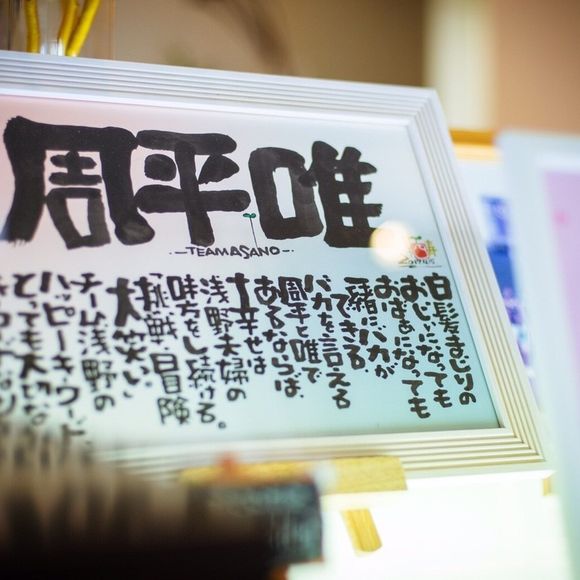 周平 唯
-TEAMASANO-
白髪まじりの
おじぃになっても
おばぁになっても
一緒にバカが
できる
バカを言える
周平と唯で
あるならば、
幸せは
浅野夫婦の
味方をし続ける。
挑戦、冒険
大笑い
チーム浅野の
ハッピーキーワード、
とっても大切な